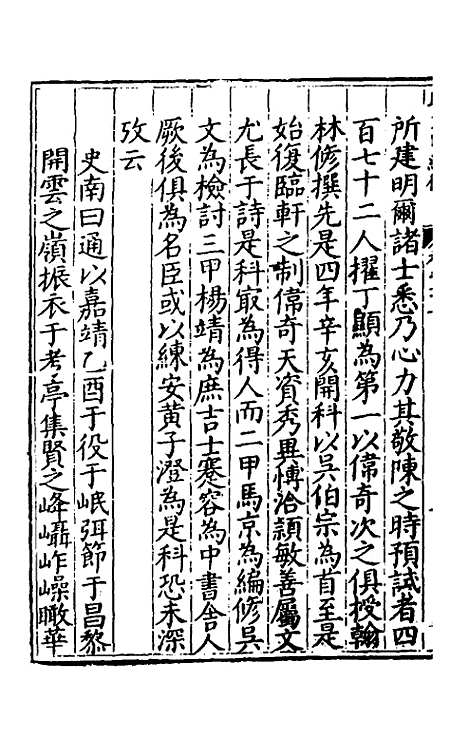 所建明爾諸士悉乃心力其敬陳之時預試者四
百七十二人擢丁顯為第一以偉奇次之俱授翰
林修撰先是四年辛亥開科以吳伯宗為首至是
始復臨軒之制偉奇天資秀異愽洽頴敏善屬文
尤長于詩是科㝡為得人而二甲馬京為編修吳
文為檢討三甲楊靖為庶吉士蹇容為中書舍人
厥後俱為名臣或以練安黄子澄為是科恐未深
攷云
史南曰通以嘉靖乙酉于役于岷弭節于昌黎
開雲之嶺振衣于考亭集賢之峰嵓岝嶫瞰華